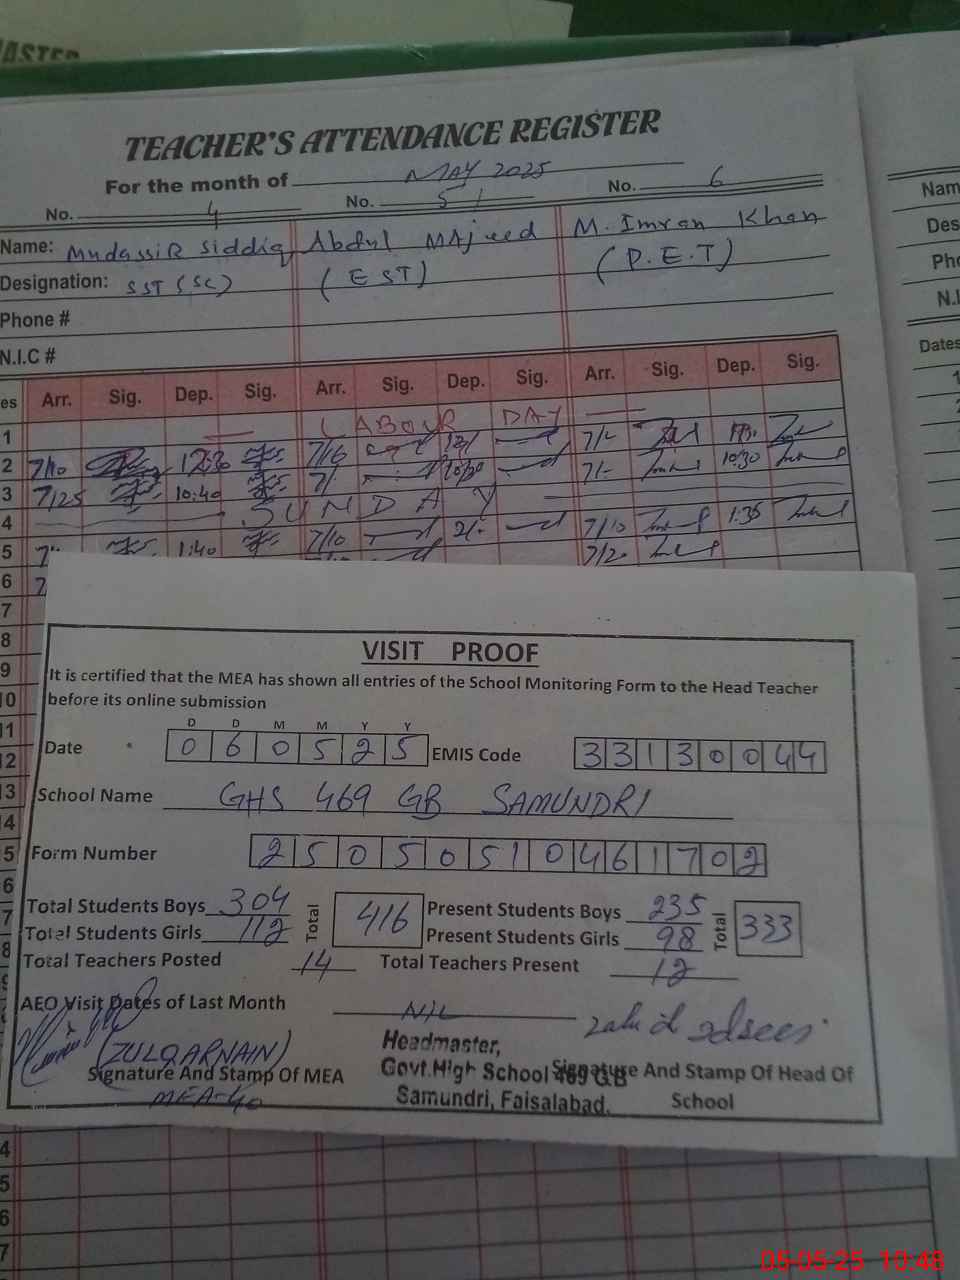 MASTER
TEACHER'S ATTENDANCE REGISTER
For the month of MAY 2025
No. 4 No. 5 No. 6
Name: Mudassir Siddiq Abdul Majeed M. Imran Khan
Designation: SST (SC) (EST) (P.E.T)
Phone #
N.I.C #
es Arr. Sig. Dep. Sig. Arr. Sig. Dep. Sig. Arr. Sig. Dep. Sig.
1 LABOUR DAY
2 7/10 12:30 7/16 7/-
3 7/25 10:40 7/- 10:30 7/- 10:30
4 SUNDAY
5 1:40 7/10 2/- 7/10 1:35
6 7/20
7
8
9
10
11
12
13
14
5
6
7
8
Nam
Des
Pho
N.I
Dates
VISIT PROOF
It is certified that the MEA has shown all entries of the School Monitoring Form to the Head Teacher
before its online submission
D D M M Y Y
Date 0 6 0 5 2 5 EMIS Code 3 3 1 3 0 0 4 4
School Name GHS 469 GB SAMUNDRI
Form Number 2 5 0 5 0 5 1 0 4 6 1 7 0 2
Total Students Boys 304 Total 416 Present Students Boys 235 Total 333
Total Students Girls 112 Present Students Girls 98
Total Teachers Posted 14 Total Teachers Present 12
AEO Visit Dates of Last Month NIL
(ZULQARNAIN)
Signature And Stamp Of MEA
MEA-40
Headmaster,
Govt.High School 469 GB
Samundri, Faisalabad.
Signature And Stamp Of Head Of
School
4
5
6
7
05-05-25 10:48